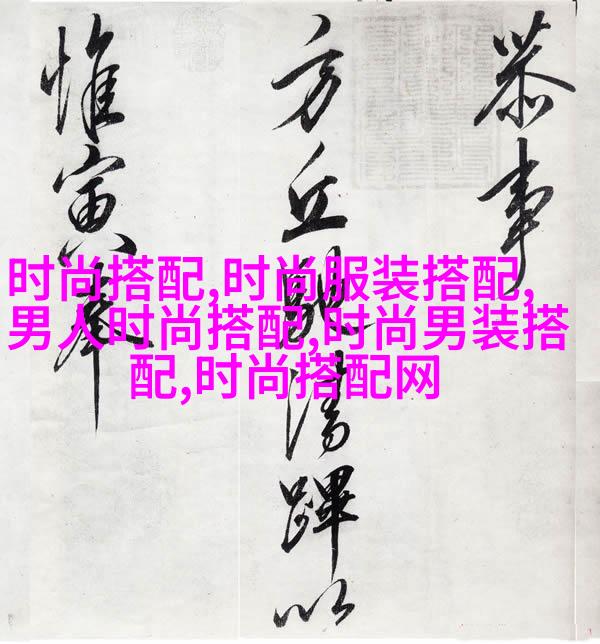 恭事
方丘清蹕以
惟寅奉
时尚搭配,时尚服装搭配,
男人时尚搭配,时尚男装搭
配,时尚搭配网